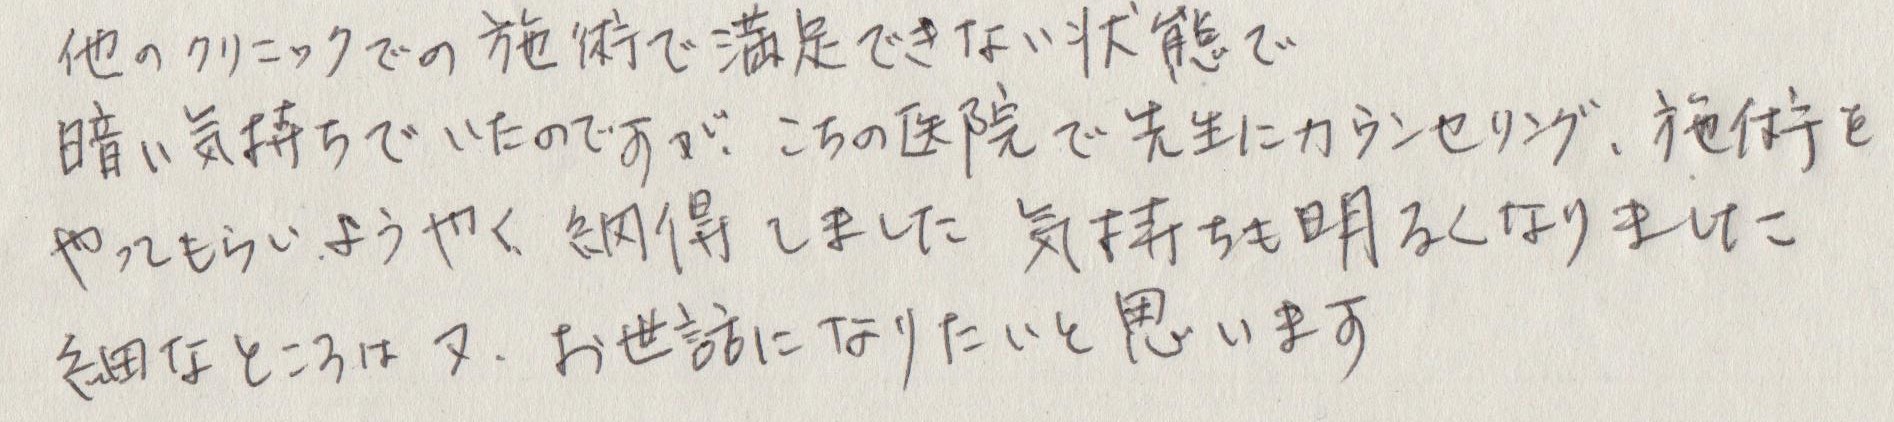 他のクリニックでの施術で満足できない状態で
暗い気持ちでいたのですが、こちの医院で先生にカウンセリング、施術を
やってもらい、ようやく納得しました 気持ちも明るくなりました
細なところは又、お世話になりたいと思います